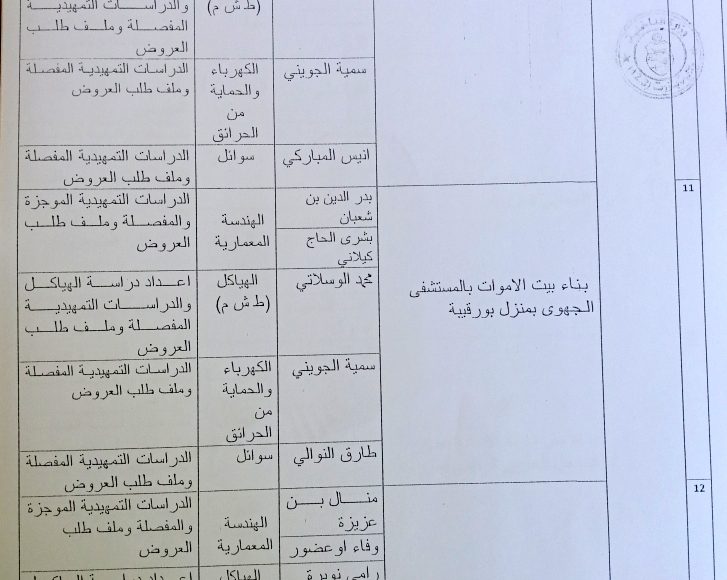 (ط ش م)
والدراسات التمهيدية
المفصلة وملف طلب
العروض
سمية الجويني
الكهرباء
والحماية
من
الحرائق
الدراسات التمهيدية المفصلة
وملف طلب العروض
انيس المباركي
سوائل
الدراسات التمهيدية المفصلة
وملف طلب العروض
11
بناء بيت الاموات بالمستشفى
الجهوى بمنزل بورقيبة
بدر الدين بن
شعبان
بشرى الحاج
كيلاني
الهندسة
المعمارية
الدراسات التمهيدية الموجزة
والمفصلة وملف طلب
العروض
محمد الوسلاتي
الهياكل
(ط ش م)
اعداد دراسة الهياكل
والدراسات التمهيدية
المفصلة وملف طلب
العروض
سمية الجويني
الكهرباء
والحماية
من
الحرائق
الدراسات التمهيدية المفصلة
وملف طلب العروض
طارق النوالي
سوائل
الدراسات التمهيدية المفصلة
وملف طلب العروض
12
منال بن
عزيزة
وفاء او عضور
الهندسة
المعمارية
الدراسات التمهيدية الموجزة
والمفصلة وملف طلب
العروض
رامي نويرة
الهياكل
اعداد دراسة الهياكل